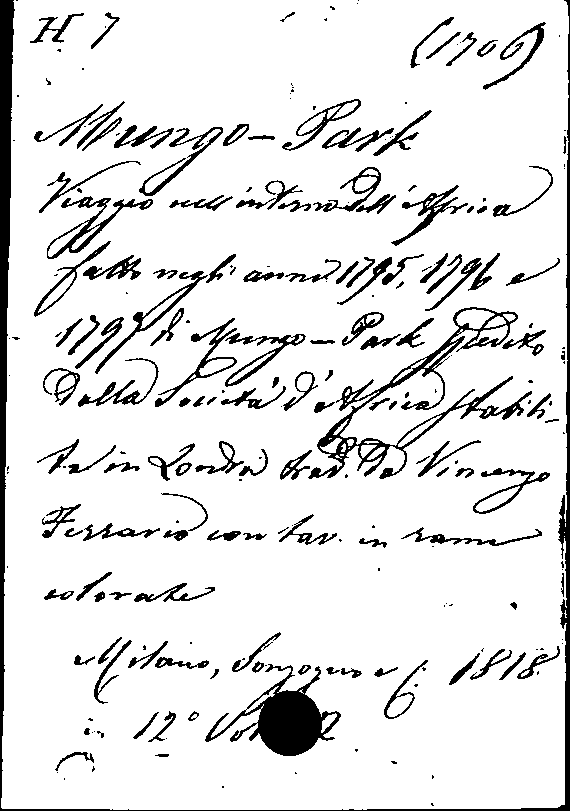 H 7 (1706)
Mungo-Park
Viaggio nell'interno dell'Africa
fatto negli anni 1795, 1796 e
1797 di Mungo-Park spedito
dalla Società d'Africa stabili-
ta in Londra trad. da Vincenzo
Ferrario con tav. in rame
colorate
Milano, Sonzogno e C. 1818
in 12° Vol 2